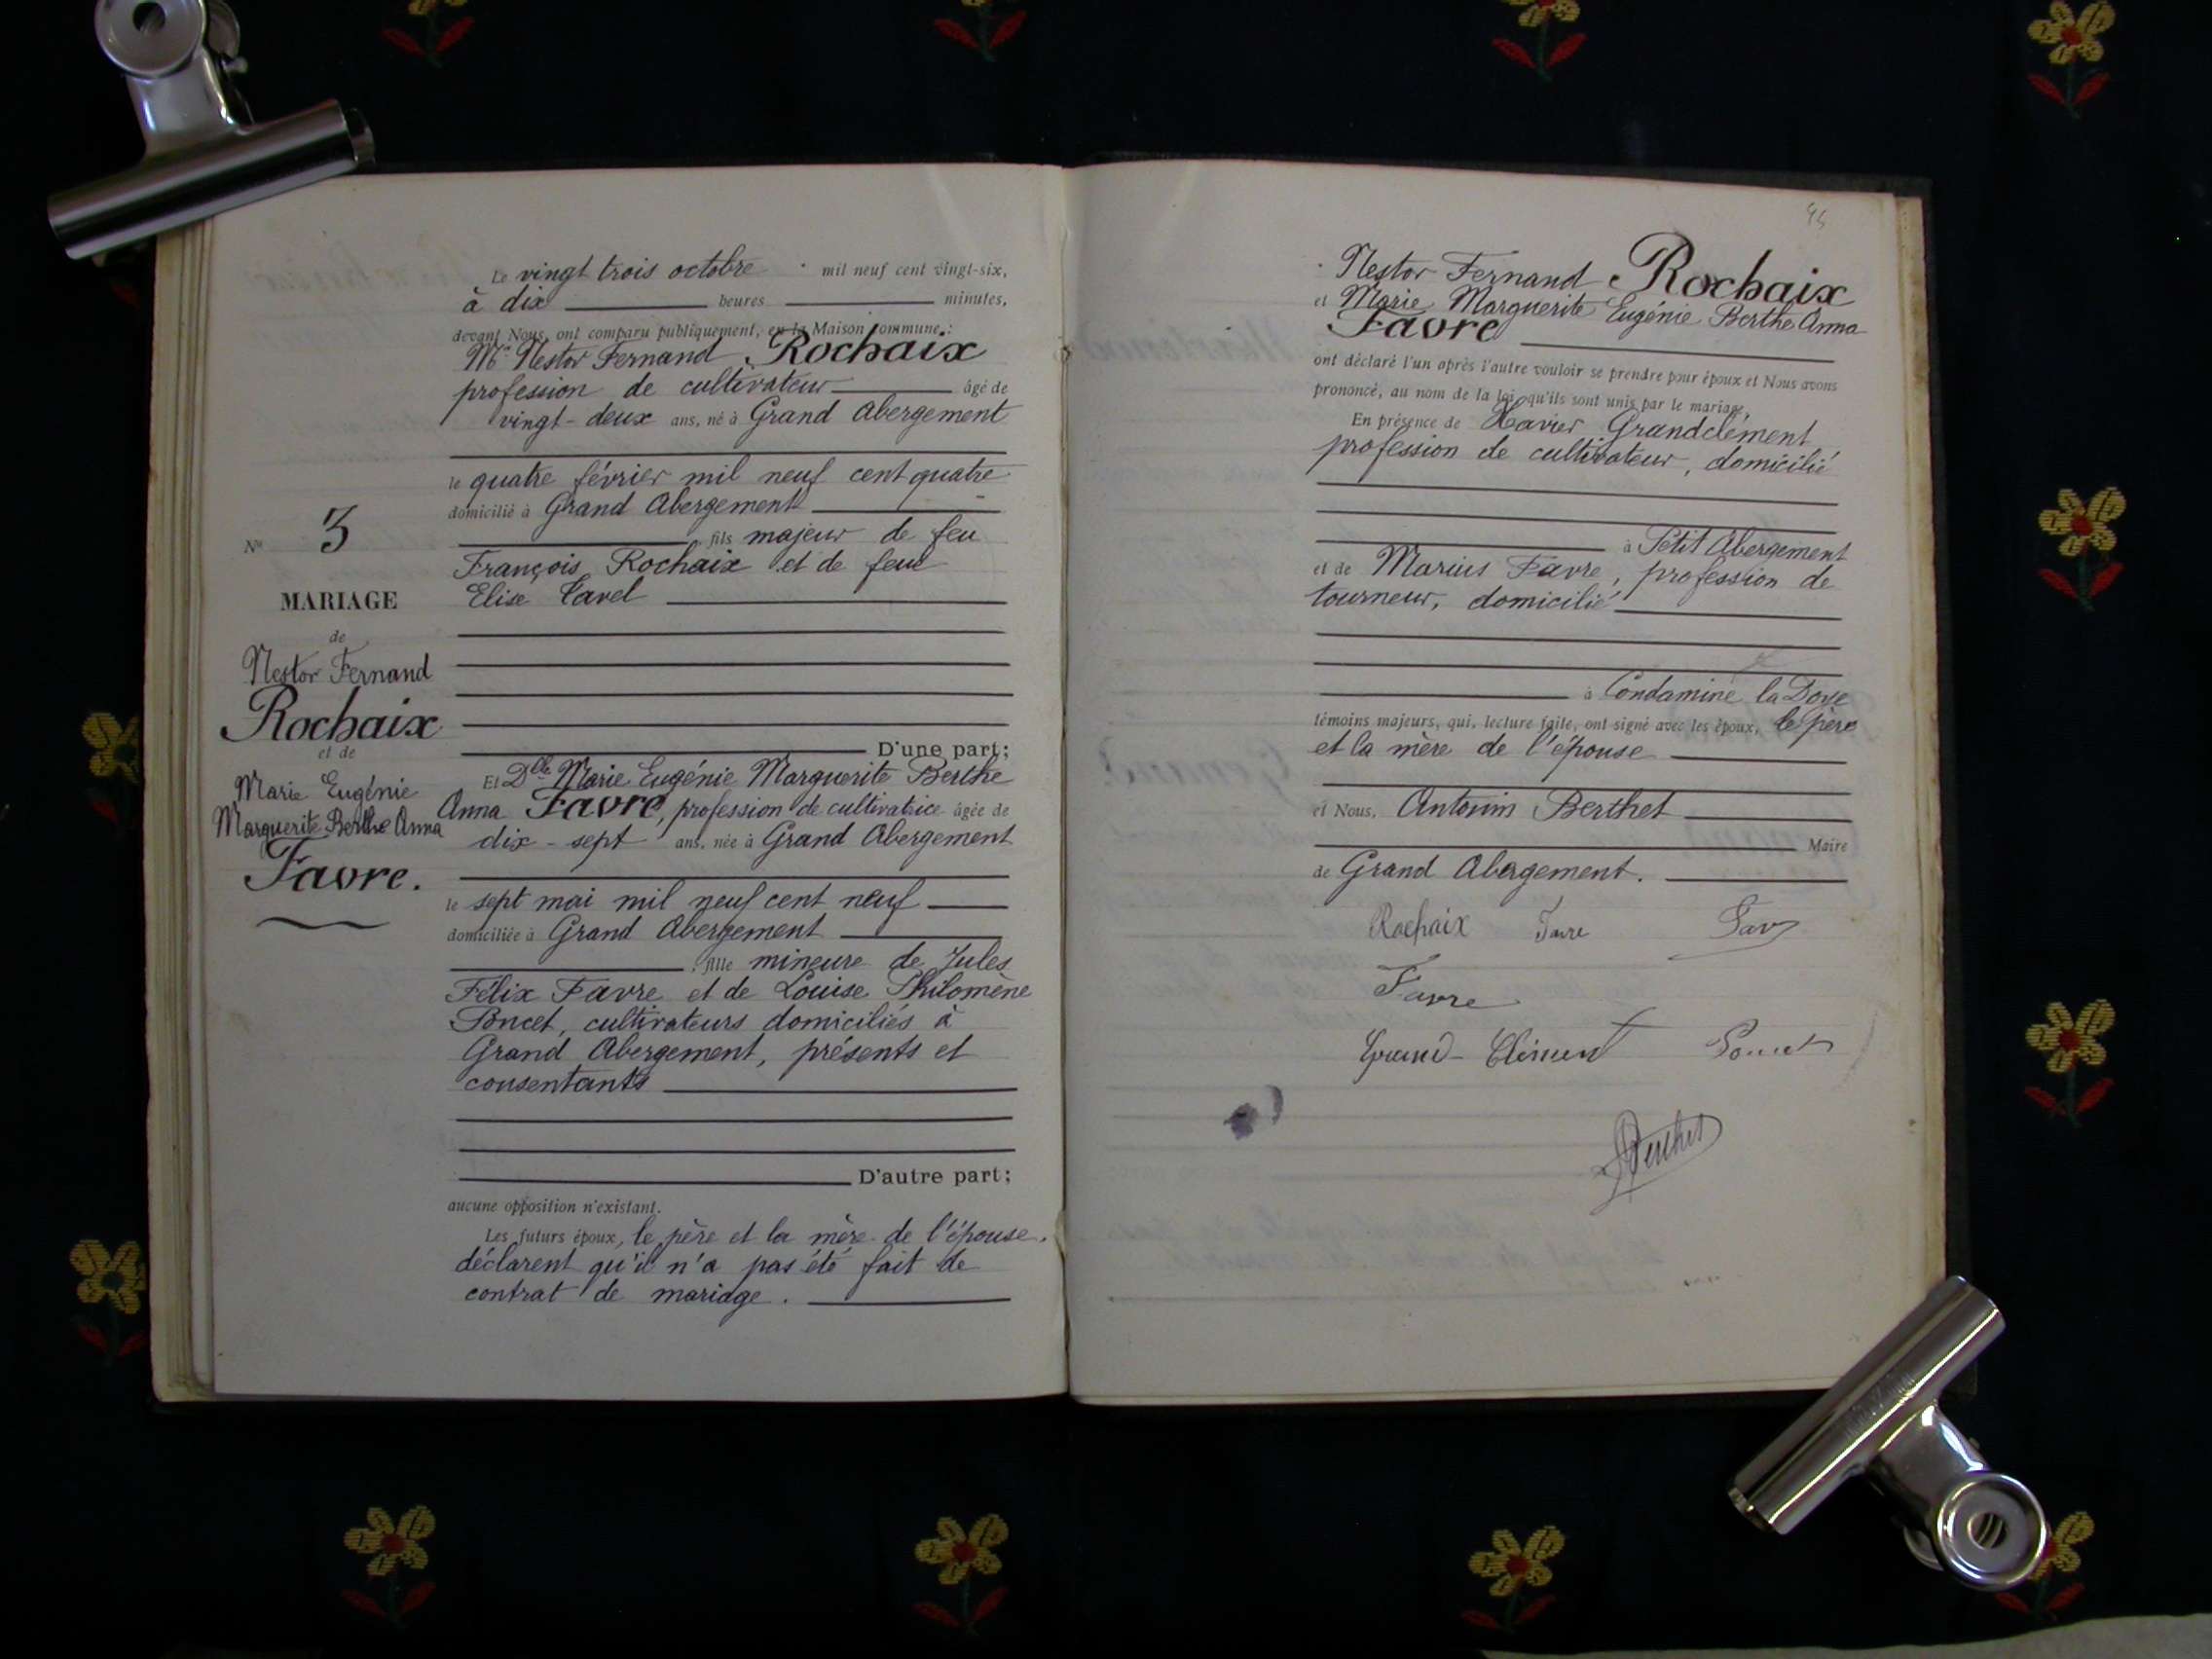 Le vingt trois octobre mil neuf cent vingt-six,
à dix heures minutes,
devant Nous, ont comparu publiquement, en la Maison commune :
Mr Nestor Fernand Rochaix
profession de cultivateur âgé de
vingt-deux ans, né à Grand Abergement
le quatre février mil neuf cent quatre
domicilié à Grand Abergement
fils majeur de feu
François Rochaix et de feue
Elise Tavel
D'une part;
Et Dlle Marie Eugénie Marguerite Berthe
Anna Favre, profession de cultivatrice âgée de
dix-sept ans, née à Grand Abergement
le sept mai mil neuf cent neuf
domiciliée à Grand Abergement
, fille mineure de Jules
Félix Favre et de Louise Philomène
Poncet, cultivateurs domiciliés à
Grand Abergement, présents et
consentants
D'autre part;
aucune opposition n'existant.
Les futurs époux, le père et la mère de l'épouse.
déclarent qu'il n'a pas été fait de
contrat de mariage.
No 3
MARIAGE
de
Nestor Fernand
Rochaix
et de
Marie Eugénie
Marguerite Berthe Anna
Favre.
Nestor Fernand Rochaix
et Marie Marguerite Eugénie Berthe Anna
Favre
ont déclaré l'un après l'autre vouloir se prendre pour époux et Nous avons
prononcé, au nom de la loi, qu'ils sont unis par le mariage.
En présence de Xavier Grandclément
profession de cultivateur, domicilié
à Petit Abergement
et de Marius Favre, profession de
tourneur, domicilié
à Condamine la Doye
témoins majeurs, qui, lecture faite, ont signé avec les époux, le père
et la mère de l'épouse
et Nous, Antonin Berthet
Maire
de Grand Abergement.
Rochaix Favre
Favre
Grand-Clément Poncet
Berthet